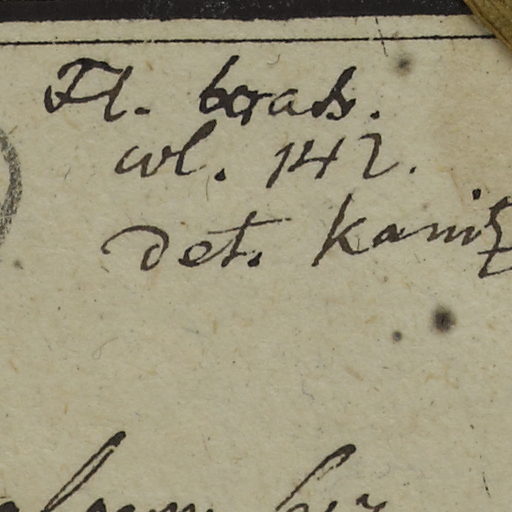 Fl. bras.
vol. 142.
Det. Kanitz